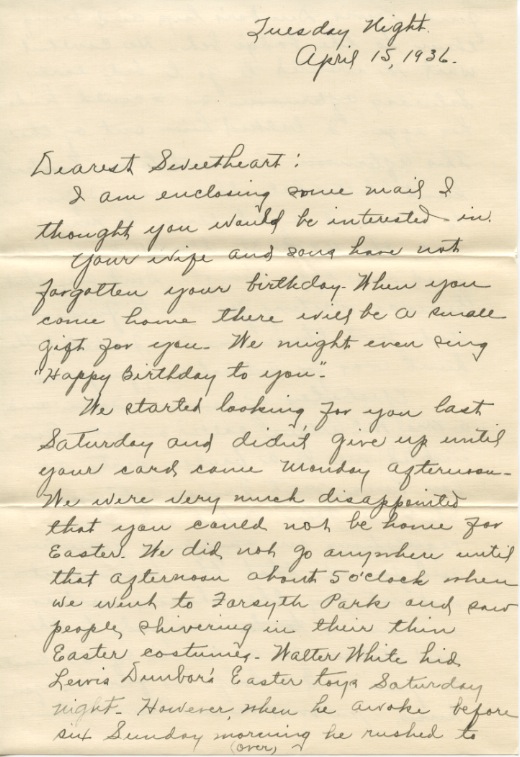 Tuesday Night.
April 15, 1936.
Dearest Sweetheart:
I am enclosing some mail I
thought you would be interested in.
Your wife and sons have not
forgotten your birthday. When you
come home there will be a small
gift for you. We might even sing
"Happy Birthday to you".
We started looking for you last
Saturday and didn't give up until
your card came Monday afternoon.
We were very much disappointed
that you could not be home for
Easter. We did not go anywhere until
that afternoon about 5 o'clock when
we went to Forsyth Park and saw
people shivering in their thin
Easter costumes. Walter White hid
Lewis Dunbar's Easter toys Saturday
night. However, when he awoke before
six Sunday morning he rushed to
(over)